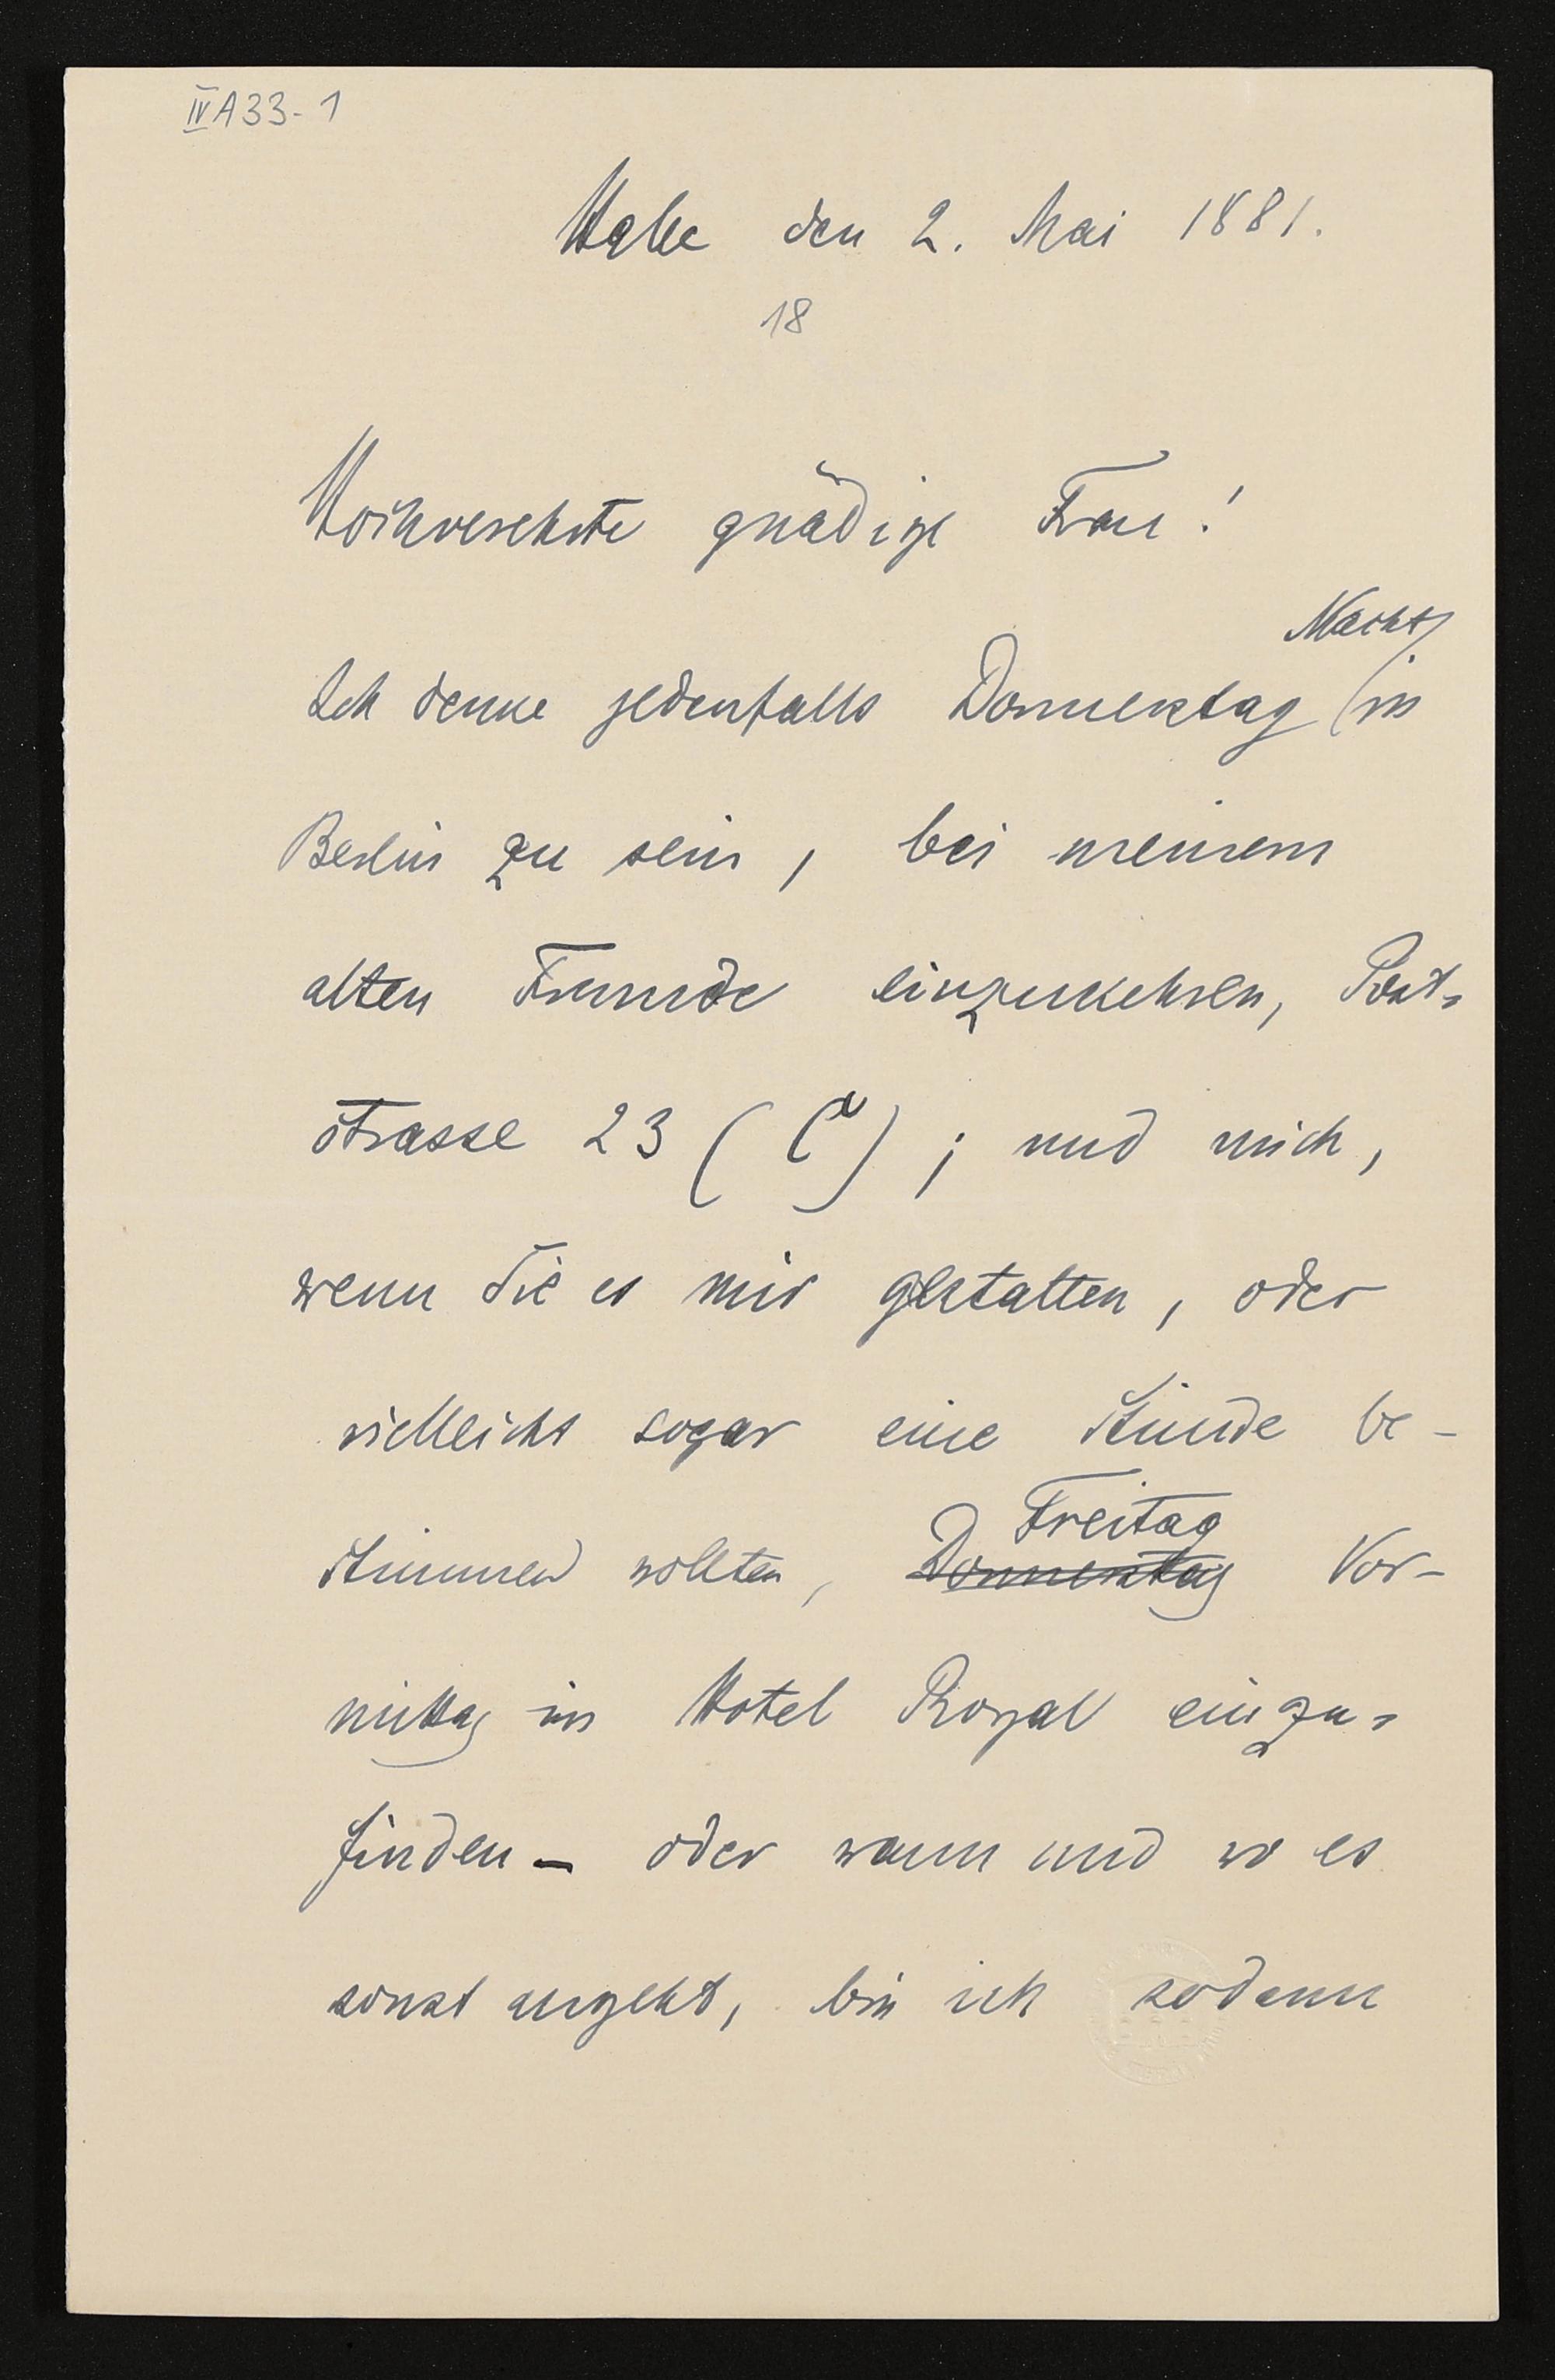 IV A 33-1
Halle den 2. Mai 1881.
18
Hochverehrte gnädige Frau!
Nacht
Ich denke jedenfalls Donnerstag in
Berlin zu sein, bei meinem
alten Freunde einzukehren, Post-
strasse 23 (C); und mich,
wenn Sie es mir gestatten, oder
vielleicht sogar eine Stunde be-
Freitag
stimmen wollten, Donnerstag Vor-
mittag im Hotel Royal einzu-
finden – oder wann und wo es
sonst angeht, bin ich sodann